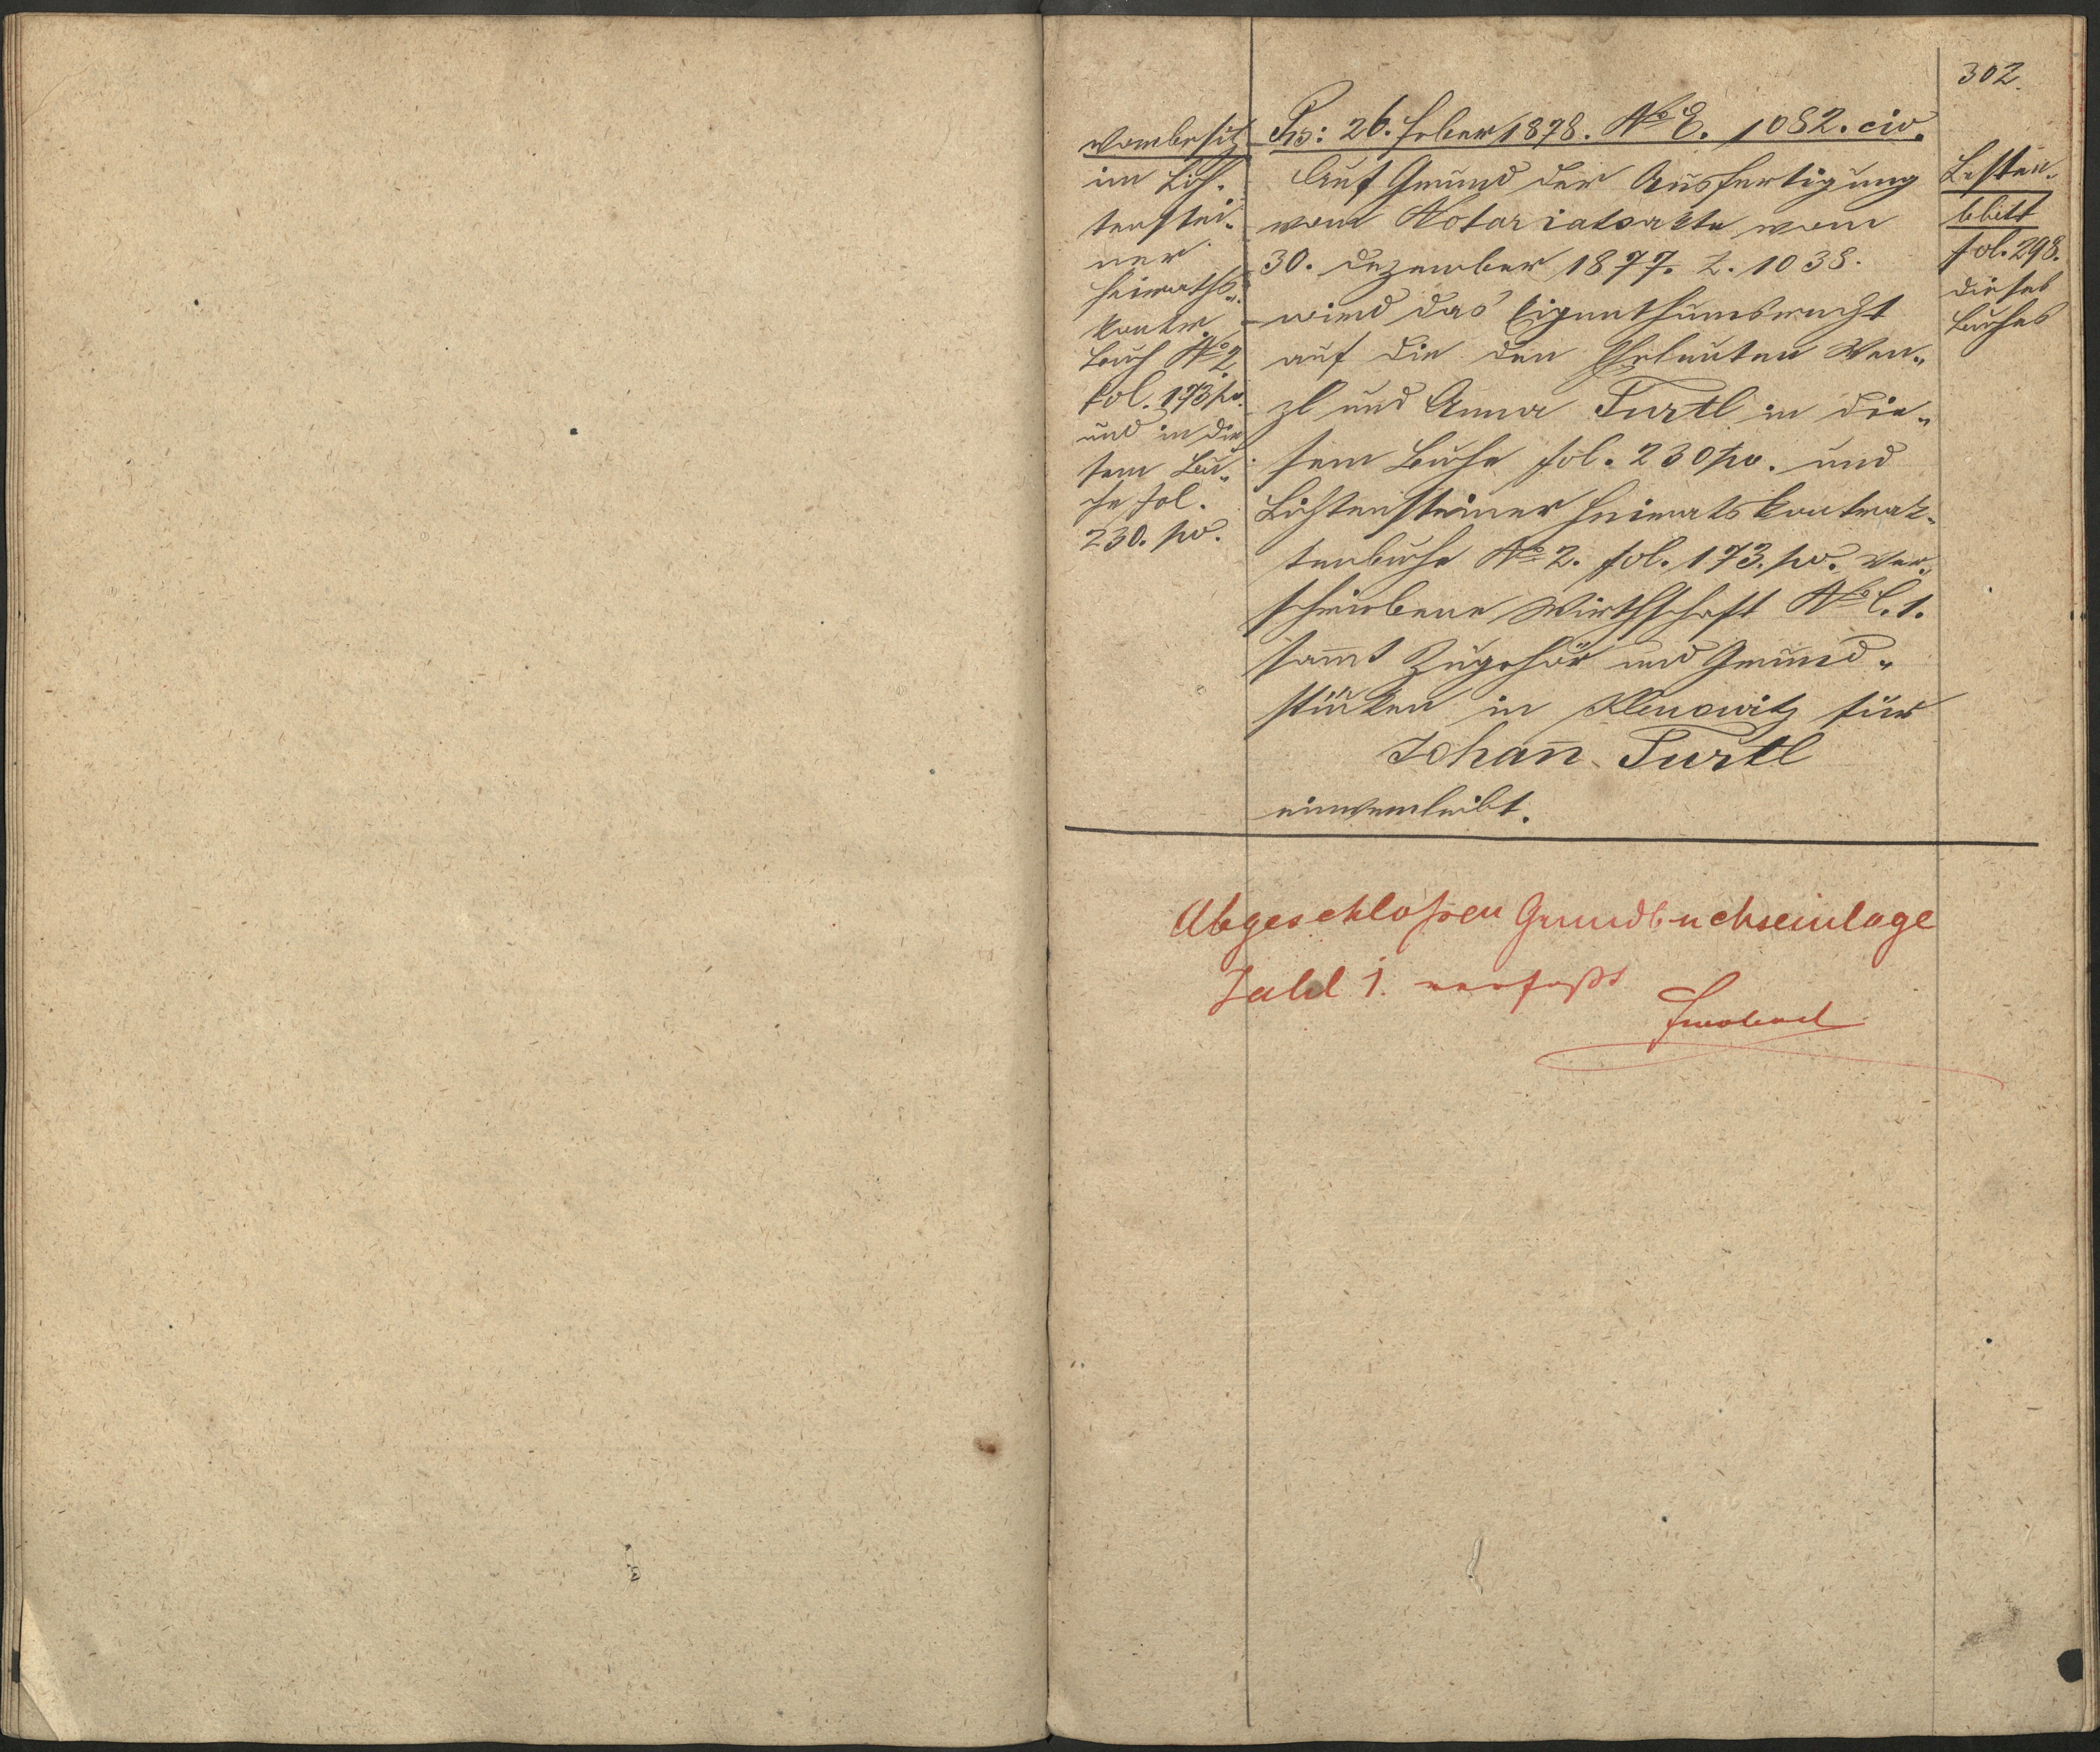 302.
Vorbesitz
im Lich-
tenstei-
ner
Heiraths-
kontr.
Buch No 2
fol. 173 pv.
und in die
sem Bu-
che fol.
230. pv.
Prs: 26. Feber 1878. No E. 1082. civ.
Auf Grund der Ausfertigung
vom Notariatsakte vom
30. Dezember 1877. Z. 1038.
wird das Eigenthumsrecht
auf die den Eheleuten Wen-
zl und Anna Turtl in die-
sem Buche fol. 230 pv. und
Lichtensteiner Heiratskontrak-
tenbuche No 2. fol. 173. pv. ver-
schriebene Wirthschaft No C. 1.
sam̅t Zugehör und Grund-
stücken in Klenowitz für
Johan̅ Turtl
einverleibt.
Lasten-
blatt
fol. 298.
dieses
Buches
Abgeschloßen Grundbuchseinlage
Zahl 1. verfaßt